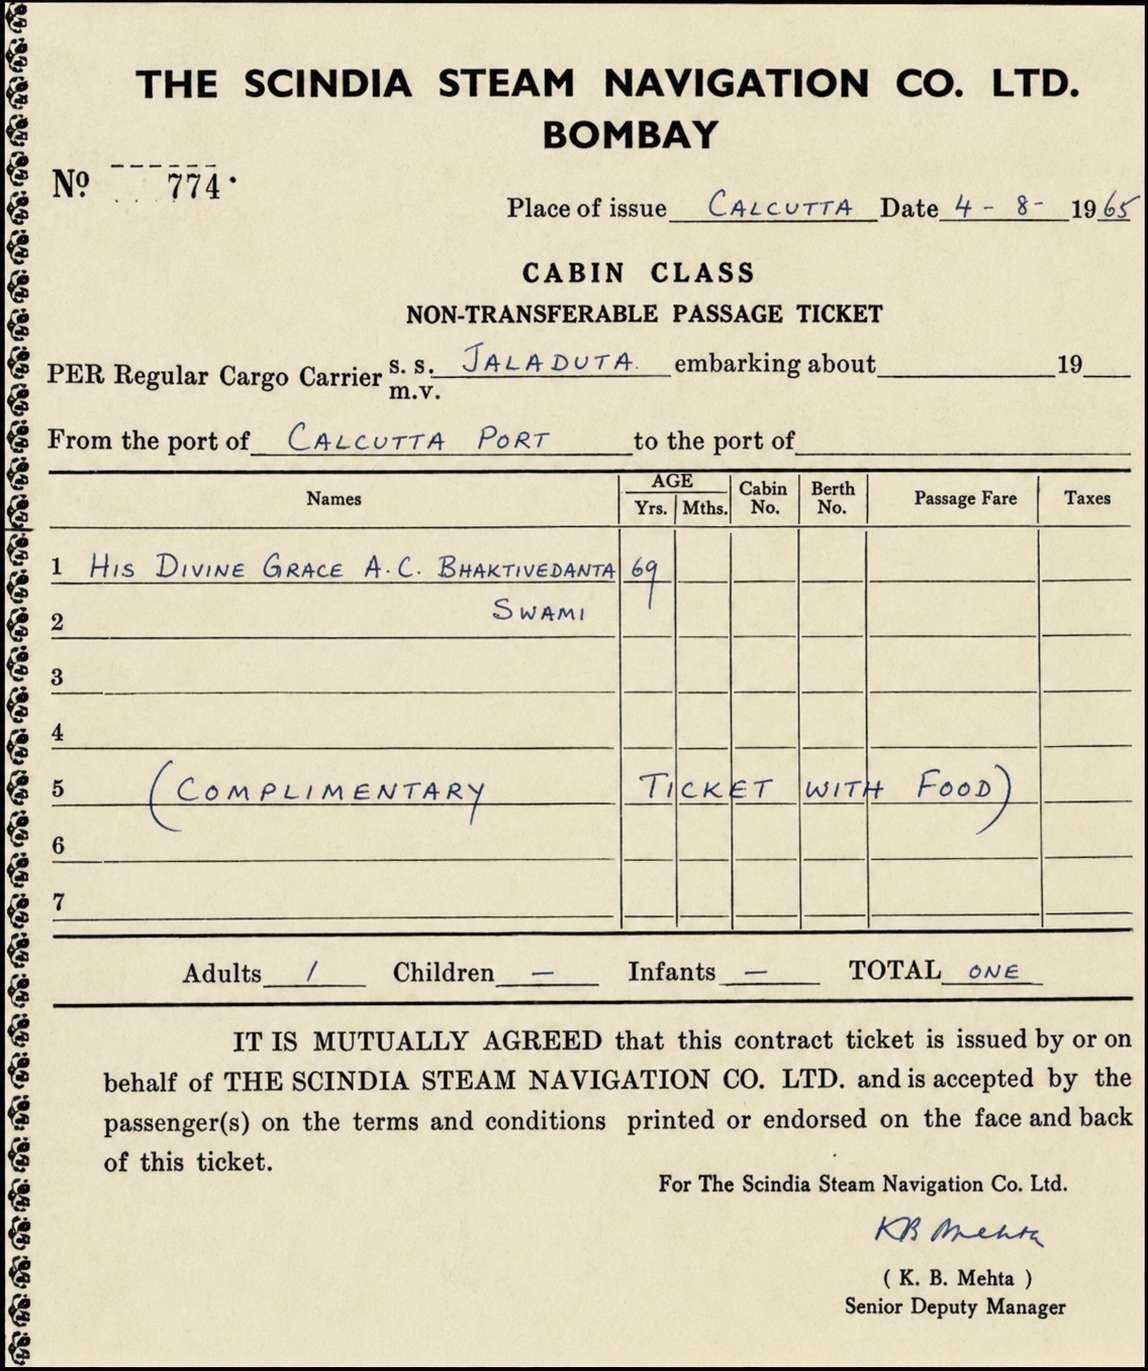 THE SCINDIA STEAM NAVIGATION CO. LTD.
BOMBAY
No 774
Place of issue CALCUTTA Date 4 - 8 - 1965
CABIN CLASS
NON-TRANSFERABLE PASSAGE TICKET
PER Regular Cargo Carrier s. s. JALADUTA. embarking about 19
m.v.
From the port of CALCUTTA PORT to the port of
Names AGE Yrs. Mths. Cabin No. Berth No. Passage Fare Taxes
1 HIS DIVINE GRACE A.C. BHAKTIVEDANTA 69
2 SWAMI
3
4
5 (COMPLIMENTARY TICKET WITH FOOD)
6
7
Adults 1 Children — Infants — TOTAL ONE
IT IS MUTUALLY AGREED that this contract ticket is issued by or on
behalf of THE SCINDIA STEAM NAVIGATION CO. LTD. and is accepted by the
passenger(s) on the terms and conditions printed or endorsed on the face and back
of this ticket.
For The Scindia Steam Navigation Co. Ltd.
KB Mehta
( K. B. Mehta )
Senior Deputy Manager